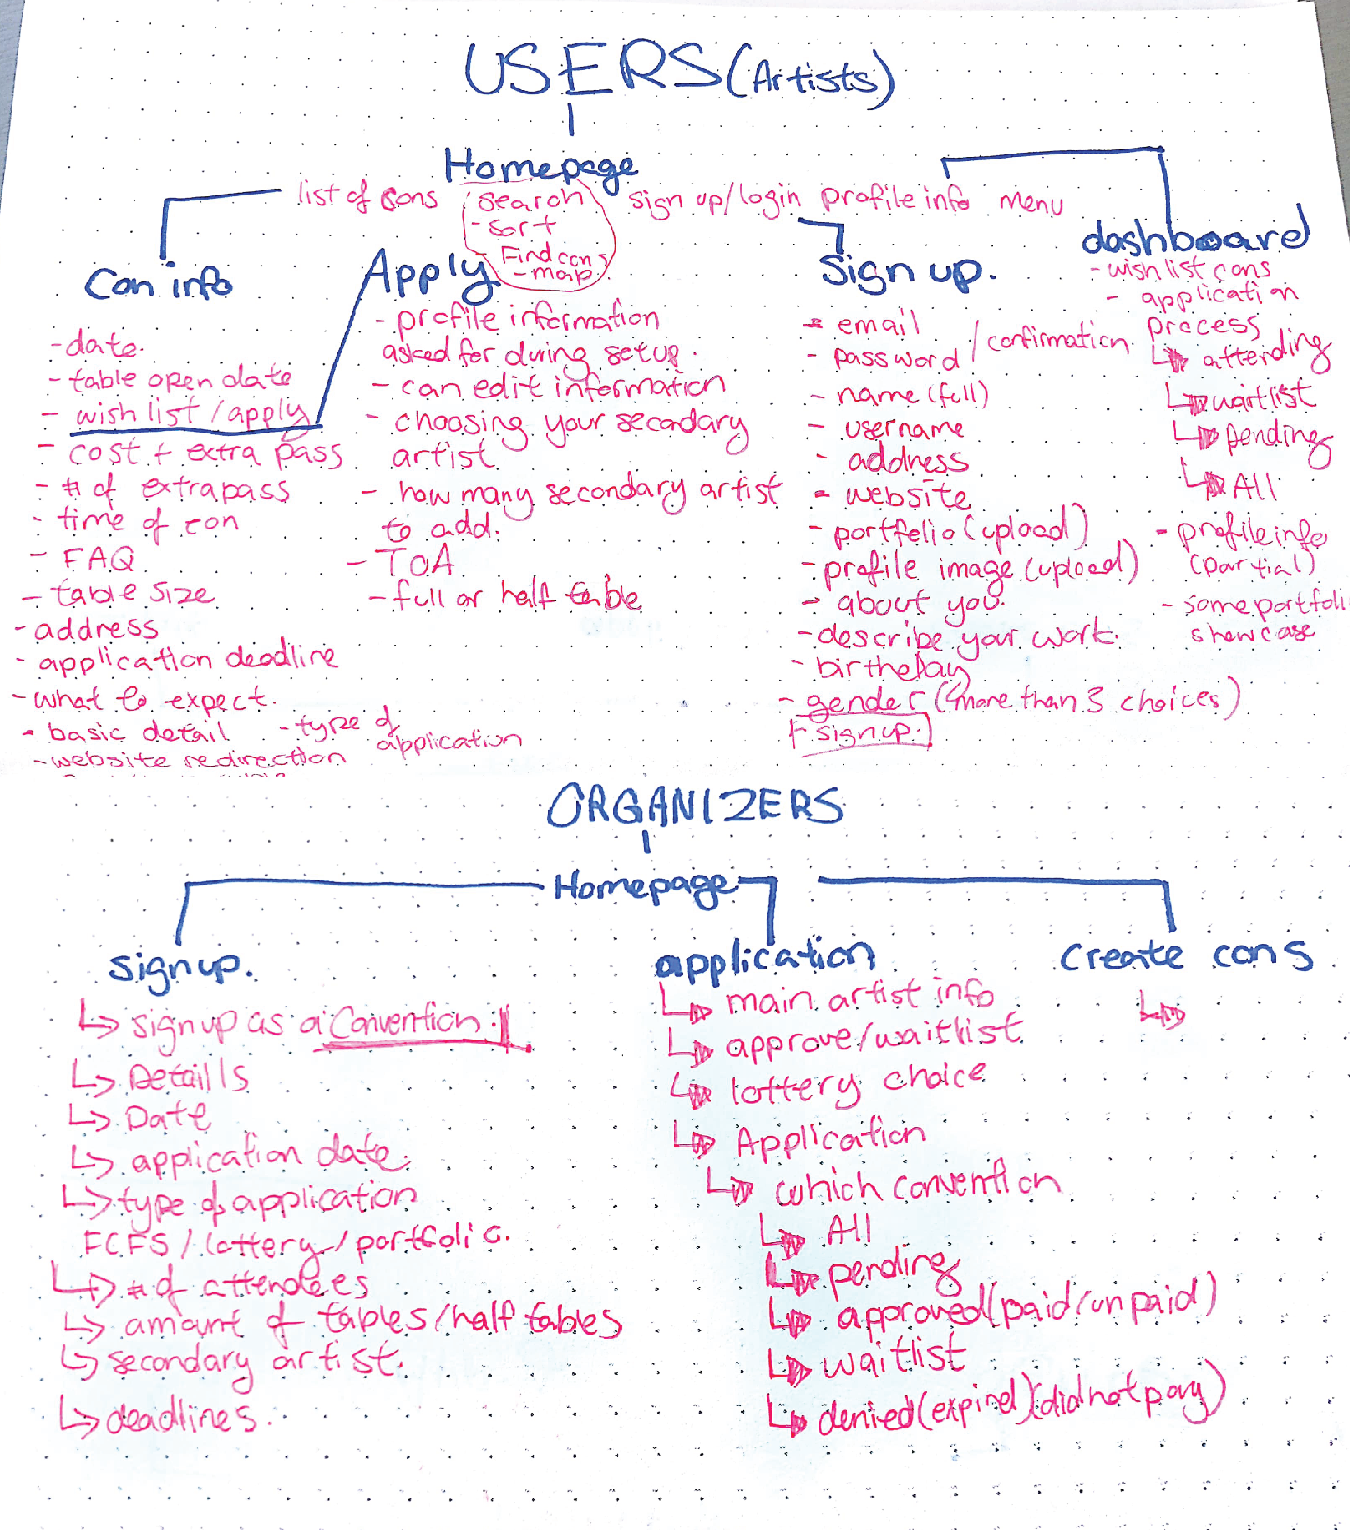 USERS (Artists)
Homepage
list of cons
search
- sort
Find cons
- map
sign up/login profile info menu
Con info
- date.
- table open date
- wish list / apply
- cost + extra pass
- # of extra pass
- time of con
- FAQ
- table size
- address
- application deadline
- what to expect.
- basic detail
- type of
application
- website redirection
Apply
- profile information
asked for during setup.
- can edit information
- choosing your secondary
artist
- how many secondary artist
to add.
- TOA
- full or half table
Sign up.
- email
- password / confirmation
- name (full)
- username
- address
- website
- portfolio (upload)
- profile image (upload)
- about you.
- describe your work.
- birthday
- gender (more than 3 choices)
- signup.
dashboard
- wish list cons
- application
process
attending
waitlist
pending
All
- profile info
(partial)
- some portfoli
showcase
ORGANIZERS
Homepage
signup.
signup as a Convention.
Detaills
Date
application date.
type of application
FCFS / lottery / portfolio.
# of attendees
amount of tables/half tables
secondary artist.
deadlines.
application
main artist info
approve/waitlist
lottery choice
Application
which convention
All
pending
approved (paid/unpaid)
waitlist
denied (expired) (did not pay)
Create cons